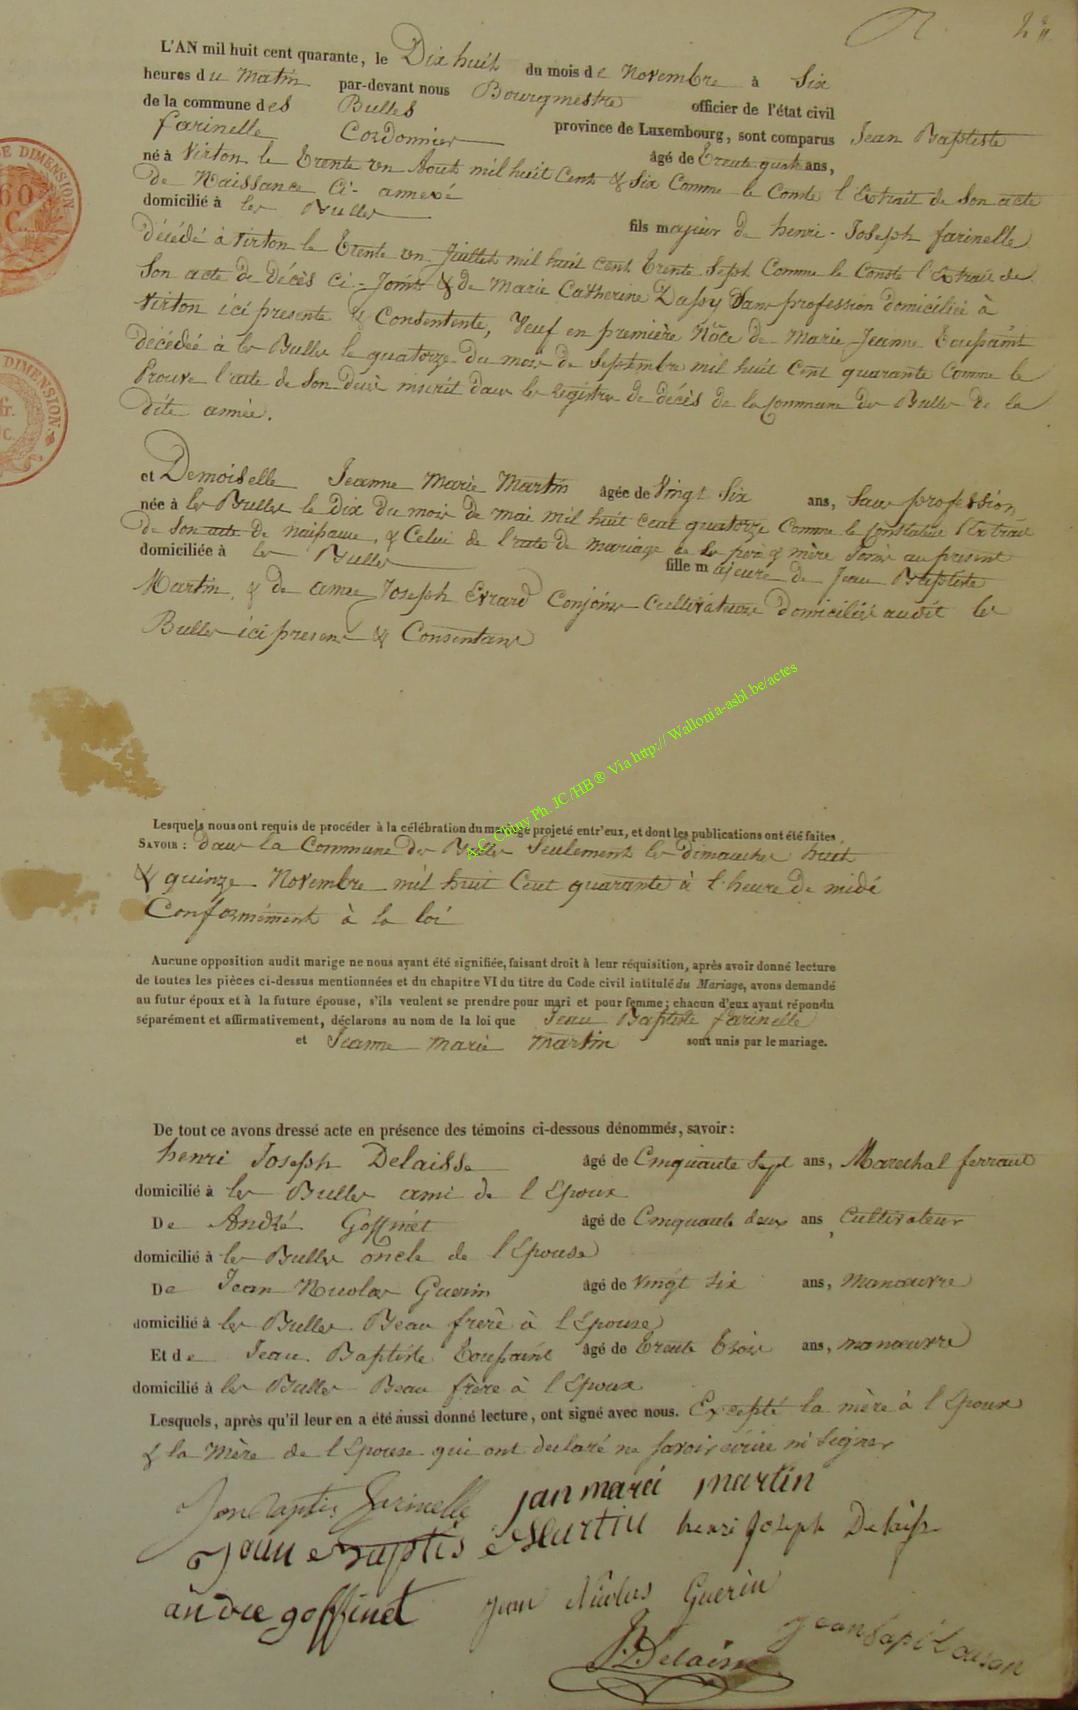 22
L'AN mil huit cent quarante, le Dix huit du mois de Novembre à Six
heures du Matin par-devant nous Bourgmestre officier de l'état civil
de la commune des Bulles province de Luxembourg, sont comparus Jean Baptiste
farinelle Cordonnier âgé de trente quatre ans,
né à Virton le trente un Aout mil huit Cent & Six Comme le Conste l'Extrait de Son acte
de Naissance Ci-annexé
domicilié à les Bulles fils majeur de henri-Joseph farinelle
décédé à Virton le trente un Juillet mil huit cent trente Sept Comme le Conste l'Extrait de
Son acte de décès ci-Joint & de Marie Catherine Dassy Sans profession domiciliée à
Virton ici presente & Consentente, Veuf en première Nôce de Marie-Jeanne toussaint
décédée à les Bulles le quatorze du mois de Septembre mil huit Cent quarante Comme le
Prouve l'acte de Son décè inscrit dans les registres de décès de la Commune des Bulles de la
dite année.
et Demoiselle Jeanne Marie Martin âgée de Vingt Six ans, Sans profession
née à les Bulles le dix du mois de mai mil huit cent quatorze Comme le Constatent l'Extrait
de Son acte de naissance, & Celui de l'acte de mariage de Ses père & mère Joins au present
domiciliée à les Bulles fille majeure de Jean Baptiste
Martin, & de anne Joseph Evrard Conjoins Cultivateurs domiciliés audit les
Bulles ici presens & Consentans
A.C. Chiny Ph. JC /HB ® Via http:// Wallonia-asbl.be/actes
Lesquels nous ont requis de procéder à la célébration du mariage projeté entr'eux, et dont les publications ont été faites
SAVOIR : dans la Commune des Bulles Seulement les dimanches huit
& quinze Novembre mil huit Cent quarante à l'heure de midi
Conformément à la loi
Aucune opposition audit marige ne nous ayant été signifiée, faisant droit à leur réquisition, après avoir donné lecture
de toutes les pièces ci-dessus mentionnées et du chapitre VI du titre du Code civil intitulé du Mariage, avons demandé
au futur époux et à la future épouse, s'ils veulent se prendre pour mari et pour femme; chacun d'eux ayant répondu
séparément et affirmativement, déclarons au nom de la loi que Jean Baptiste farinelle
et Jeanne Marie Martin sont unis par le mariage.
De tout ce avons dressé acte en présence des témoins ci-dessous dénommés, savoir :
henri Joseph Delaisse âgé de Cinquante Sept ans, Marechal ferrant
domicilié à les Bulles ami de l'Epoux
De André Goffinet âgé de Cinquante deux ans, Cultivateur
domicilié à les Bulles oncle de l'Epouse
De Jean Nicolas Guerin âgé de vingt six ans, manœuvre
domicilié à les Bulles Beau frère à l'Epouse
Et de Jean Baptiste toussaint âgé de trente trois ans, manœuvre
domicilié à les Bulles Beau frère à l'Epoux
Lesquels, après qu'il leur en a été aussi donné lecture, ont signé avec nous. Excepté la mère à l'Epoux
& la Mère de l'Epouse qui ont declaré ne savoir écrire ni Signer
Jean Baptis Farinelle jan mari martin
jean Baptis Martin henri Joseph Delaiss
andre goffinet Jean Nicolas Guerin
Delaisse